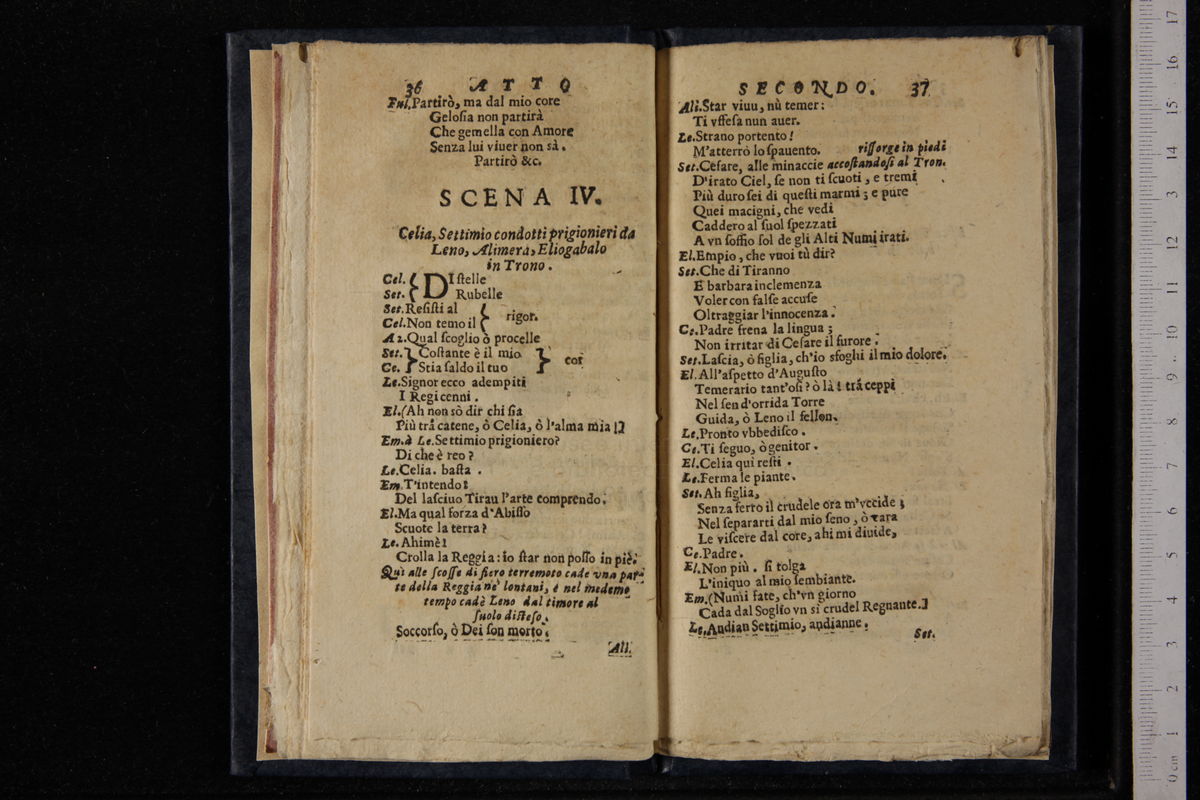 36 ATTO
Ful.Partirò, ma dal mio core
Gelosia non partirà
Che gemella con Amore
Senza lui viuer non sà.
Partirò &c.
SCENA IV.
Celia, Settimio condotti prigionieri da
Leno, Alimera, Eliogabalo
in Trono.
Cel. { DIstelle
Set. { Rubelle
Set.Resisti al {
Cel.Non temo il { rigor.
A 2.Qual scoglio ò procelle
Set. } Costante è il mio }
Ce. } Stia saldo il tuo } cor
Le.Signor ecco adempiti
I Regi cenni.
El.(Ah non sò dir chi sia
Più trà catene, ò Celia, ò l'alma mia!)
Em.à Le.Settimio prigioniero?
Di che è reo?
Le.Celia. basta.
Em.T'intendo:
Del lasciuo Tirau l'arte comprendo.
El.Ma qual forza d'Abisso
Scuote la terra?
Le.Ahimè!
Crolla la Reggia: io star non posso in piè.
Qui alle scosse di fiero terremoto cade vna par-
te della Reggia ne' lontani, e nel medemo
tempo cadè Leno dal timore al
suolo disteso.
Soccorso, ò Dei son morto.
Ali.
SECONDO. 37
Ali.Star viuu, nù temer:
Ti vffesa nun auer.
Le.Strano portento!
M'atterrò lo spauento. risorge in piedi
Set.Cesare, alle minaccie accostandosi al Tron.
D'irato Ciel, se non ti scuoti, e tremi
Più duro sei di questi marmi; e pure
Quei macigni, che vedi
Caddero al suol spezzati
A vn soffio sol de gli Alti Numi irati.
El.Empio, che vuoi tù dir?
Set.Che di Tiranno
E barbara inclemenza
Voler con false accuse
Oltraggiar l'innocenza.
Ce.Padre frena la lingua;
Non irritar di Cesare il furore.
Set.Lascia, ò figlia, ch'io sfoghi il mio dolore.
El.All'aspetto d'Augusto
Temerario tant'osi? ò là! trà ceppi
Nel sen d'orrida Torre
Guida, ò Leno il fellon.
Le.Pronto vbbedisco.
Ce.Ti seguo, ò genitor.
El.Celia qui resti.
Le.Ferma le piante.
Set.Ah figlia,
Senza ferro il crudele ora m'vccide;
Nel separarti dal mio seno, ò cara
Le viscere dal core, ahi mi diuide,
Ce.Padre.
El.Non più. si tolga
L'iniquo al mio sembiante.
Em.(Numi fate, ch'vn giorno
Cada dal Soglio vn sì crudel Regnante.)
Le.Andian Settimio, andianne.
Set.